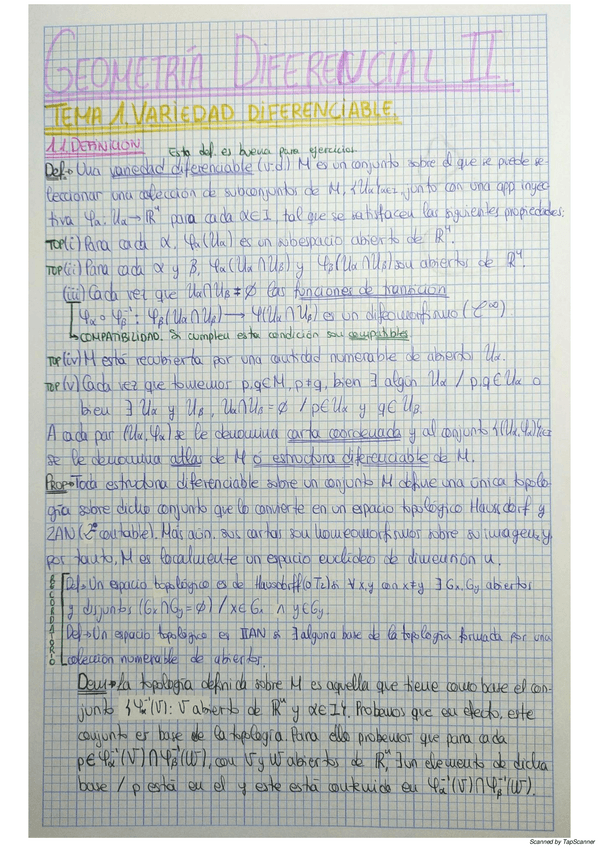 GEOMETRÍA DIFERENCIAL II.
TEMA 1. VARIEDAD DIFERENCIABLE.
1.1. DEFINICION
Esta def. es buena para ejercicios.
Def→Una variedad diferenciable (v.d.) M es un conjunto sobre el que se puede se-
leccionar una colección de subconjuntos de M, {Uα}α∈I, junto con una app. inyec-
tiva φα: Uα→ℝⁿ para cada α∈I tal que se satisfacen las siguientes propiedades:
TOP(i) Para cada α, φα(Uα) es un subespacio abierto de ℝⁿ.
TOP(ii) Para cada α y β, φα(Uα∩Uβ) y φβ(Uα∩Uβ) son abiertos de ℝⁿ.
(iii) Cada vez que Uα∩Uβ≠∅ las funciones de transición
φα∘φβ⁻¹: φβ(Uα∩Uβ)→φ(Uα∩Uβ) es un difeomorfismo (C^∞)
COMPATIBILIDAD. Si cumplen esta condición son compatibles.
TOP(iv) M está recubierta por una cantidad numerable de abierto Uα.
TOP(v) Cada vez que tomemos p,q∈M, p≠q, bien ∃ algún Uα / p,q∈Uα o
bien ∃ Uα y Uβ, Uα∩Uβ=∅ / p∈Uα y q∈Uβ.
A cada par (Uα,φα) se le denomina carta coordenada y al conjunto {(Uα,φα)}α∈I
se le denomina atlas de M o estructura diferenciable de M.
PROP→Toda estructura diferenciable sobre un conjunto M define una única topolo-
gía sobre dicho conjunto que lo convierte en un espacio topológico Hausdorf y
2AN (2º countable). Más aún, sus cartas son homeomorfismos sobre su imagen, y
por tanto, M es localmente un espacio euclideo de dimensión n.
RECORDATORIO
Def→Un espacio topológico es de Hausdorff (o T2) si ∀x,y con x≠y ∃ Gx,Gy abiertos
y disjuntos (Gx∩Gy=∅) / x∈Gx ∧ y∈Gy.
Def→Un espacio topológico es IIAN si ∃ alguna base de la topología formada por una
colección numerable de abiertos.
Dem→La topología definida sobre M es aquella que tiene como base el con-
junto {φα⁻¹(V): V abierto de ℝⁿ y α∈I}. Probemos que en efecto, este
conjunto es base de la topología. Para ello probemos que para cada
p∈φα⁻¹(V)∩φβ⁻¹(W), con V y W abiertos de ℝⁿ, ∃ un elemento de dicha
base / p está en el y este está contenido en φα⁻¹(V)∩φβ⁻¹(W).
Scanned by TapScanner